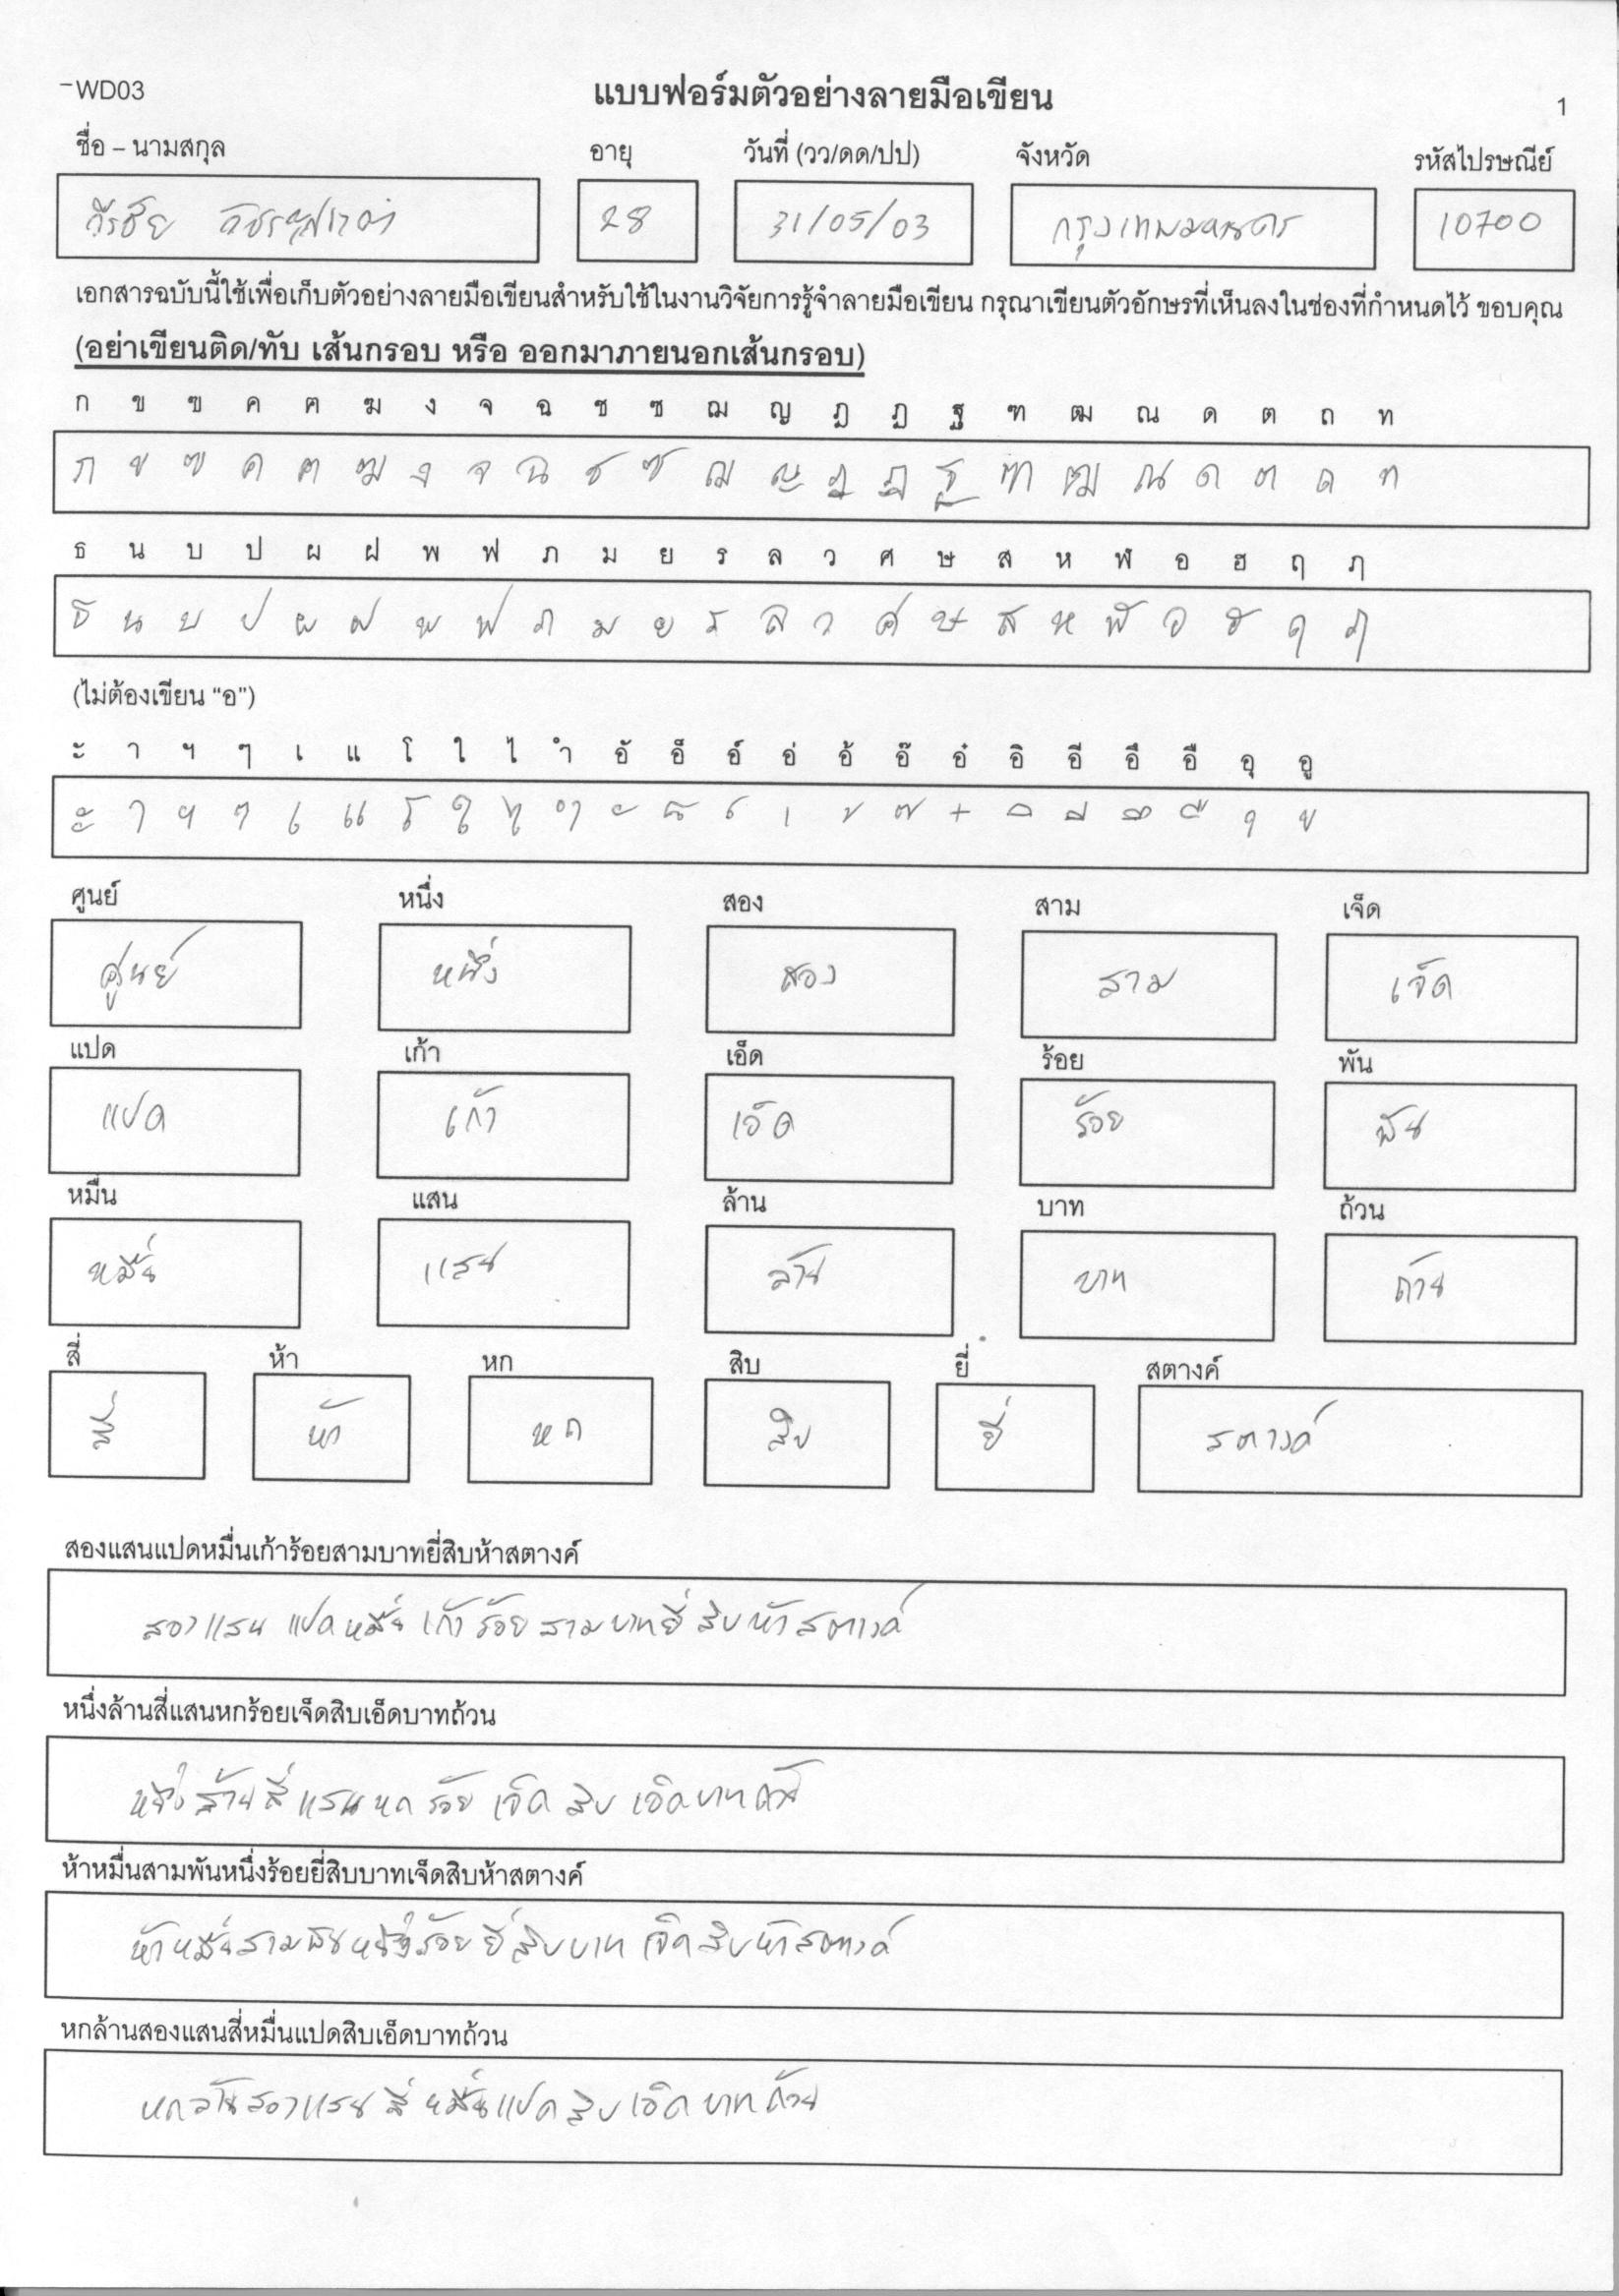 WD03
แบบฟอร์มตัวอย่างลายมือเขียน
1
ชื่อ – นามสกุล อายุ วันที่ (วว/ดด/ปป) จังหวัด รหัสไปรษณีย์
วีรชัย 28 31/05/03 กรุงเทพมหานคร 10700
เอกสารฉบับนี้ใช้เพื่อเก็บตัวอย่างลายมือเขียนสำหรับใช้ในงานวิจัยการรู้จำลายมือเขียน กรุณาเขียนตัวอักษรที่เห็นลงในช่องที่กำหนดไว้ ขอบคุณ
(อย่าเขียนติด/ทับ เส้นกรอบ หรือ ออกมาภายนอกเส้นกรอบ)
ก ข ฃ ค ฅ ฆ ง จ ฉ ช ซ ฌ ญ ฎ ฏ ฐ ฑ ฒ ณ ด ต ถ ท
ก ข ฃ ค ฅ ฆ ง จ ฉ ช ซ ฌ ญ ฎ ฏ ฐ ฑ ฒ ณ ด ต ถ ท
ธ น บ ป ผ ฝ พ ฟ ภ ม ย ร ล ว ศ ษ ส ห ฬ อ ฮ ฤ ฦ
ธ น บ ป ผ ฝ พ ฟ ภ ม ย ร ล ว ศ ษ ส ห ฬ อ ฮ ฤ ฦ
(ไม่ต้องเขียน “อ”)
ะ า ฯ ๆ เ แ โ ใ ไ ำ อั อ็ อ์ อ่ อ้ อ๊ อ๋ อิ อี อึ อื อุ อู
ะ า ฯ ๆ เ แ โ ใ ไ ำ ั ็ ์ ่ ้ ๊ ๋ ิ ี ึ ื ุ ู
ศูนย์ หนึ่ง สอง สาม เจ็ด
ศูนย์ หนึ่ง สอง สาม เจ็ด
แปด เก้า เอ็ด ร้อย พัน
แปด เก้า เอ็ด ร้อย พัน
หมื่น แสน ล้าน บาท ถ้วน
หมื่น แสน ล้าน บาท ถ้วน
สี่ ห้า หก สิบ ยี่ สตางค์
สี่ ห้า หก สิบ ยี่ สตางค์
สองแสนแปดหมื่นเก้าร้อยสามบาทยี่สิบห้าสตางค์
สองแสน แปดหมื่น เก้าร้อย สามบาทยี่สิบห้าสตางค์
หนึ่งล้านสี่แสนหกร้อยเจ็ดสิบเอ็ดบาทถ้วน
หนึ่งล้านสี่แสนหกร้อย เจ็ดสิบ เอ็ดบาทถ้วน
ห้าหมื่นสามพันหนึ่งร้อยยี่สิบบาทเจ็ดสิบห้าสตางค์
ห้าหมื่นสามพันหนึ่งร้อยยี่สิบบาท เจ็ดสิบห้าสตางค์
หกล้านสองแสนสี่หมื่นแปดสิบเอ็ดบาทถ้วน
หกล้านสองแสน สี่หมื่นแปดสิบเอ็ดบาทถ้วน